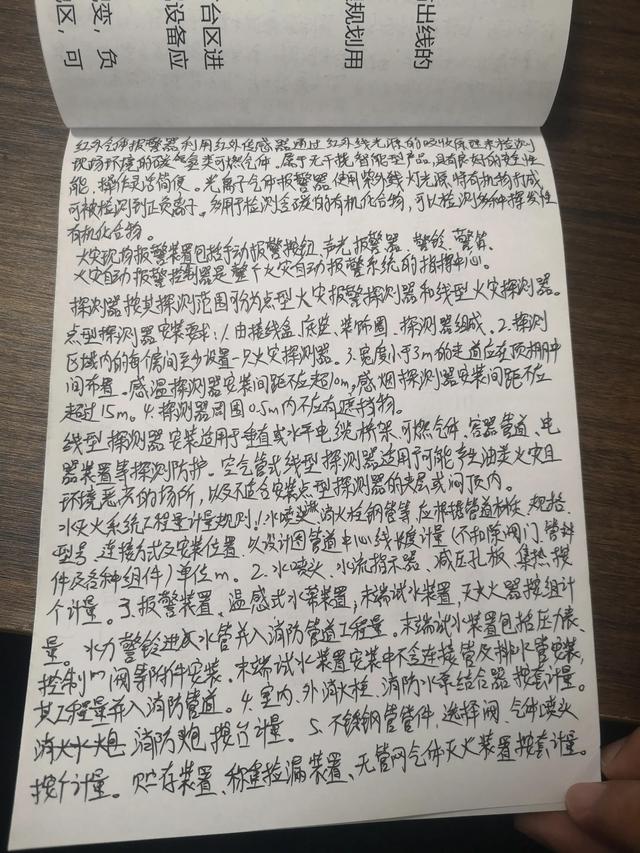 出线的
规划用
合区进
设备应
变，负
区，可
红外气体报警器利用红外传感器通过红外线光源的吸收原理来检测
现场环境的碳氢类可燃气体。属于无干扰智能型产品，具有良好的安全性
能、操作灵活简便。光离子气体报警器使用紫外线灯光源将有机物打成
可被检测到正负离子。多用于检测含碳的有机化合物，可以检测多种挥发性
有机化合物。
火灾现场报警装置包括手动报警按钮、声光报警器、警铃、警笛。
火灾自动报警控制器是整个火灾自动报警系统的指挥中心。
探测器按其探测范围可分为点型火灾报警探测器和线型火灾探测器。
点型探测器安装要求：1.由接线盒、底座、装饰圈、探测器组成。2.探测
区域内的每个房间至少设置一只火灾探测器。3.宽度小于3m的走道应在顶棚中
间布置。感温探测器安装间距不应超10m，感烟探测器安装间距不应
超过15m。4.探测器周围0.5m内不应有遮挡物。
线型探测器安装适用于垂直或水平电缆桥架、可燃气体、容器管道、电
器装置等探测防护。空气管式线型探测器适用于可能产生油类火灾且
环境恶劣的场所，以及不适合安装点型探测器的夹层或闷顶内。
水灭火系统工程量计量规则：1.水喷淋、消火栓钢管等，应根据管道材质、规格、
型号、连接方式及安装位置，以设计图管道中心线长度计量（不扣除阀门、管
件及各种组件）单位m。2.水喷头、水流指示器、减压孔板、集热按
个计量。3.报警装置、温感式水幕装置，末端试水装置，灭火器按组计
量。水力警铃进水管并入消防管道工程量。末端试水装置包括压力表、
控制阀等附件安装。末端试水装置安装中不含连接管及排水管安装，
其工程量并入消防管道。4.室内、外消火栓、消防水泵结合器按套计量。
消防炮按台计量。5.不锈钢管管件，选择阀、气体喷头
按个计量。贮存装置、称重检漏装置、无管网气体灭火装置按套计量。